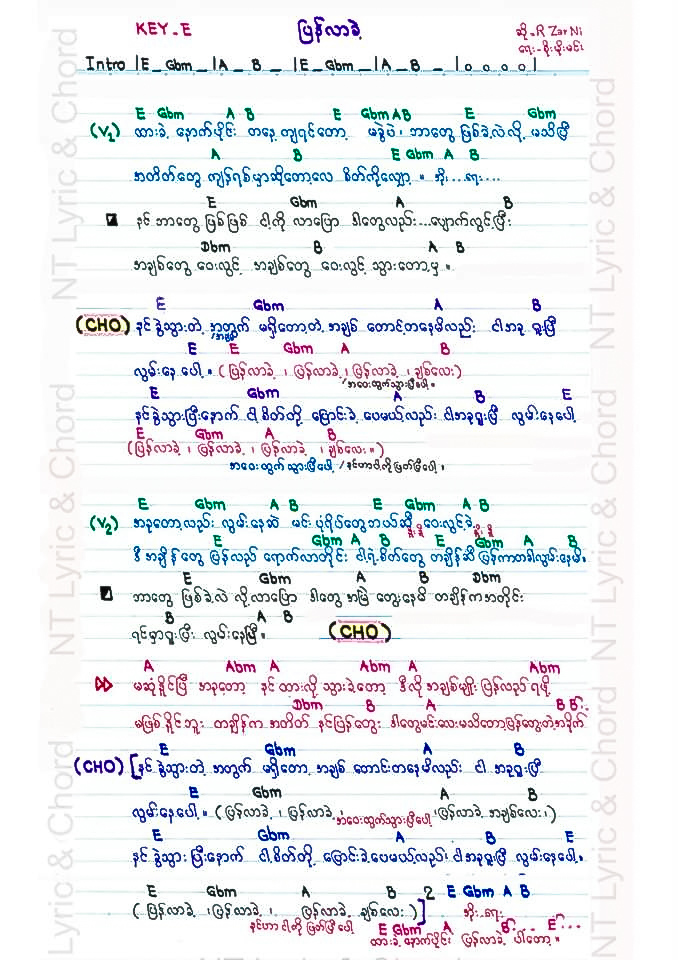 KEY - E ပြန်လာခဲ့ ဆို - R Zar Ni
ရေး - စိုးမိုးမင်း
Intro |E _ Gbm _ |A _ B _ |E _ Gbm _ |A _ B _ |o o o o|
E Gbm A B E Gbm A B E Gbm
(V₁) ထားခဲ့ နောက်ပိုင်း တနေ့ ကျရင်တော့ မခွဲပဲ၊ ဘာတွေ ဖြစ်ခဲ့လဲလို့ မသိဖြီ
A B E Gbm A B
အတိတ်တွေ ကျန်ရစ်မှာဆိုတော့လေ စိတ်ကိုလျှော့ ။ အိုး...ရေး....
E Gbm A B
နင် ဘာတွေ ဖြစ်ဖြစ် ငါ့ကို လာပြော ဒါတွေလည်း...ပျောက်လွင့်ပြီး
Dbm B A B
အချစ်တွေ ဝေးလွင့် အချစ်တွေ ဝေးလွင့် သွားတော့မှ ။
E Gbm A B
(CHO) နင် ခွဲသွားတဲ့ အတွက် မရှိတော့တဲ့ အချစ် တောင့်တနေမိလည်း ငါအခု ရူးပြီ
E E Gbm A B
လွမ်းနေပေါ့ ။ (ပြန်လာခဲ့ ၊ ပြန်လာခဲ့ ၊ ပြန်လာခဲ့ ၊ ချစ်လေး)
/အဝေးထွက်သွားပြီပေါ့ ။
E Gbm A B E
နင်ခွဲသွားပြီးနောက် ငါ့စိတ်တို့ ပြောင်းခဲ့ ပေမယ့်လည်း ငါအခုရူးပြီ လွမ်းနေပေါ့
E Gbm A B
(ပြန်လာခဲ့ ၊ ပြန်လာခဲ့ ၊ ပြန်လာခဲ့ ၊ ချစ်လေး ။)
အဝေးထွက်သွားပြီပေါ့ /နင်ဟာငါ့ကိုဖြတ်ပြီပေါ့ ၊
E Gbm A B E Gbm A B
(V₂) အခုတော့လည်း လွမ်းနေဆဲ မင်းပုံရိပ်တွေဘယ်ဆီ ဝေးလွင့်ခဲ့
E Gbm A B E Gbm A B
ဒီအချိန်တွေ ပြန်လည် ရောက်လာတိုင်း ငါ့ရဲ့စိတ်တွေ တချိန်ဆီ ပြန်ကာတခါလွမ်းနေမိ.
E Gbm A B Dbm
ဘာတွေ ဖြစ်ခဲ့လဲ လို့လာပြော ဒါတွေ အမြဲ တွေးနေမိ တချိန်ကအတိုင်း
B A B
ရင်မှာရူးပြီး လွမ်းနေမြဲ ။ (CHO)
A Abm A Abm A Abm
မဆုံနိုင်ပြီ အခုတော့ နင် ထားလို့ သွားခဲ့တော့ ဒီလို အချစ်မျိုး ပြန်လည်ရဖို့
Dbm B A B B...
မဖြစ်နိုင်ဘူး တချိန်က အတိတ် နင်ပြန်တွေး ဒါတွေမင်းလေးမသိတော့ပြန်တွေ့တဲ့အခိုက်
E Gbm A B
(CHO) [နင် ခွဲသွားတဲ့ အတွက် မရှိတော့ အချစ် တောင်းတနေမိလည်း ငါ အခုရူးပြီ
E Gbm A B
လွမ်းနေပေါ့ ။ (ပြန်လာခဲ့ ၊ ပြန်လာခဲ့ ၊ အဝေးထွက်သွားပြီပေါ့ ပြန်လာခဲ့ အချစ်လေး ၊)
E Gbm A B E
နင် ခွဲသွားပြီးနောက် ငါ့စိတ်တို့ ပြောင်းခဲ့ပေမယ့်လည်း ငါအခုရူးပြီ လွမ်းနေပေါ့.
E Gbm A B 2 E Gbm A B
( ပြန်လာခဲ့ ၊ပြန်လာခဲ့ ၊ ပြန်လာခဲ့ ချစ်လေး )] အိုး..ရေး
နင်ဟာ ငါ့ကို ဖြတ်ပြီပေါ့ E Gbm A B... E...
ထားခဲ့ နောက်ပိုင်း ပြန်လာခဲ့ ပါတော့ ။
NT Lyric & Chord
NT Lyric & Chord
NT Lyric & Chord
NT Lyric & Chord
NT Lyric & Chord
NT Lyric & Chord